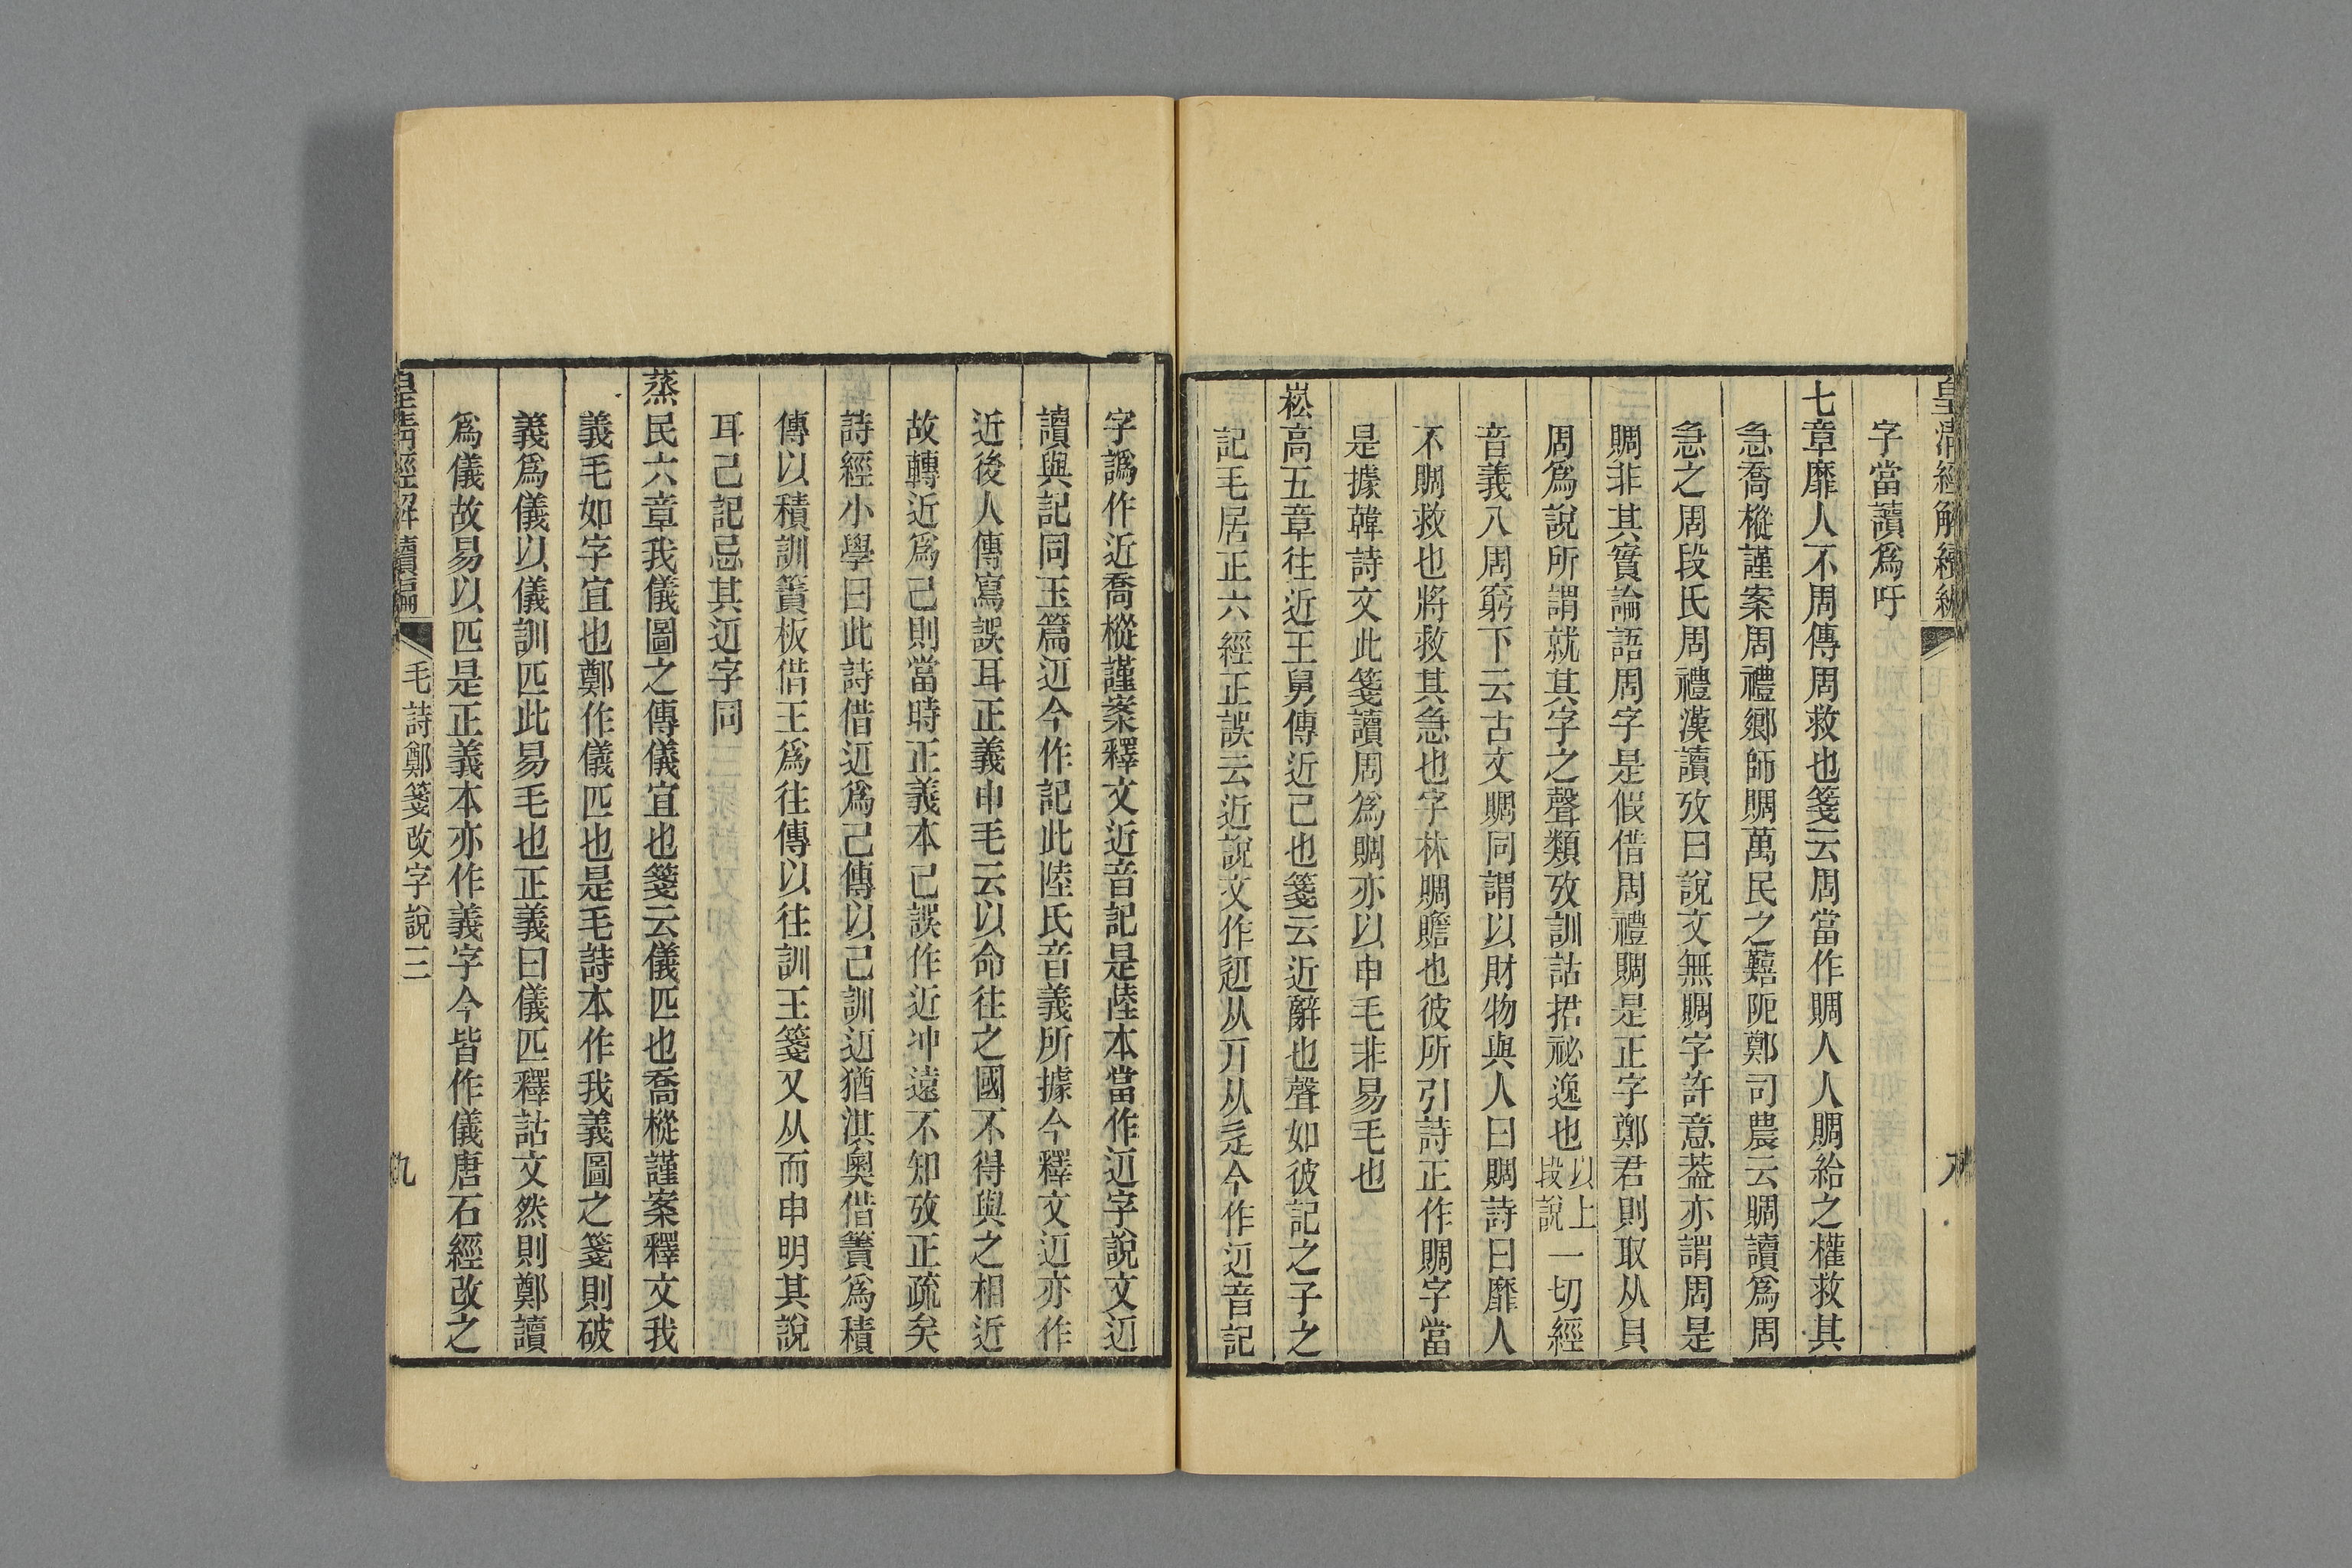 皇清經解續編
字當讀爲吁
七章靡人不周傳周救也箋云周當作賙人人賙給之權救其
急喬樅謹案周禮鄉師賙萬民之囏阨鄭司農云賙讀爲周
急之周段氏周禮漢讀攷曰說文無賙字許意葢亦謂周是
賙非其實論語周字是假借周禮賙是正字鄭君則取从貝
周爲說所謂就其字之聲類攷訓詁捃祕逸也以上段說一切經
音義八周窮下云古文賙同謂以財物與人曰賙詩曰靡人
不賙救也將救其急也字林賙贍也彼所引詩正作賙字當
是據韓詩文此箋讀周爲賙亦以申毛非易毛也
崧高五章往近王舅傳近己也箋云近辭也聲如彼記之子之
記毛居正六經正誤云近說文作䢋从丌从辵今作䢋音記
字譌作近喬樅謹案釋文近音記是陸本當作䢋字說文䢋
讀與記同玉篇䢋今作記此陸氏音義所據今釋文䢋亦作
近後人傳寫誤耳正義申毛云以命往之國不得與之相近
故轉近爲己則當時正義本已誤作近冲遠不知攷正疏矣
詩經小學曰此詩借䢋爲己傳以己訓䢋猶淇奧借簀爲積
傳以積訓簀板借王爲往傳以往訓王箋又从而申明其說
耳己記忌其䢋字同
蒸民六章我儀圖之傳儀宜也箋云儀匹也喬樅謹案釋文我
義毛如字宜也鄭作儀匹也是毛詩本作我義圖之箋則破
義爲儀以儀訓匹此易毛也正義曰儀匹釋詁文然則鄭讀
爲儀故易以匹是正義本亦作義字今皆作儀唐石經改之
皇清經解續編 毛詩鄭箋改字說三 九